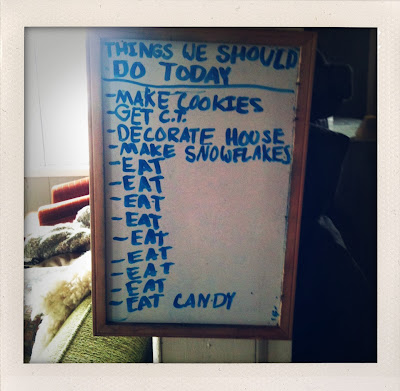 THINGS WE SHOULD
DO TODAY
-MAKE COOKIES
-GET C.T.
-DECORATE HOUSE
-MAKE SNOWFLAKES
-EAT
-EAT
-EAT
-EAT
-EAT
-EAT
-EAT
-EAT
-EAT CANDY